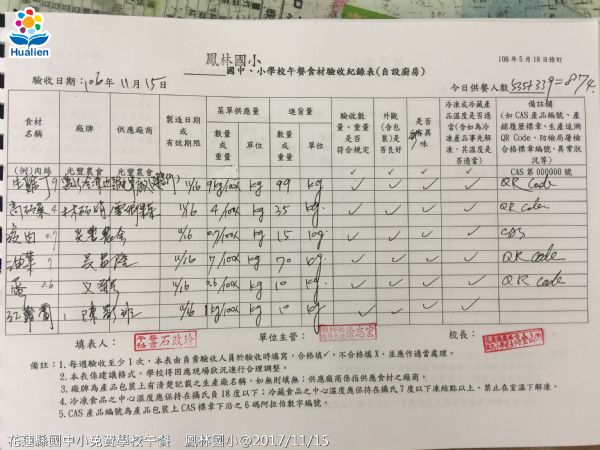 Hualien
106年5月18日修訂
鳳林國小
國中、小學校午餐食材驗收紀錄表(自設廚房)
驗收日期：106年11月15日
今日供餐人數535+339=874.
食材名稱 廠牌 供應廠商 製造日期或有效期限 菜單供應量 進貨量 驗收數量、重量是否符合規定 外觀(含包裝)是否良好 是否有異味 冷凍或冷藏產品溫度是否適當(含如為冷凍產品事先解凍，其溫度是否適當) 備註欄(如CAS產品編號、產銷履歷標章、生產追溯QR Code、防檢局屠檢合格標章編號、異常狀況等)
數量或重量 單位 數量或重量 單位
(例)肉絲 光豐農會 光豐農會 ✓ ✓ ✓ ✓ CAS 第000000號
11/16 9kg/100人 kg 99 kg ✓ ✓ ✓ ✓ QR Code
4 11/16 4/100人 kg 35 kg ✓ ✓ ✓ ✓ QR Code
0.7 光豐農會 11/16 0.7/100人 kg 15 kg ✓ ✓ ✓ ✓ CAS
油菜 7 11/16 7/100人 kg 70 kg ✓ ✓ ✓ ✓ QR code
0.6 11/16 0.6/100人 kg 10 kg ✓ ✓ ✓ ✓ QR code
紅蘿蔔 1 陳 11/16 1kg/100人 kg 10 kg ✓ ✓ ✓ ✓
填表人： 石政玲 單位主管： 校長：
備註：1.每週驗收至少1次，本表由負責驗收人員於驗收時填寫，合格填✓，不合格填X，並應作適當處理。
2.本表係建議格式，學校得因應現場狀況進行合理調整。
3.廠牌為產品包裝上有清楚記載之生產廠名稱，如無則填無；供應廠商係指供應食材之廠商。
4.冷凍食品之中心溫度應保持在攝氏負18度以下；冷藏食品之中心溫度應保持在攝氏7度以下凍結點以上，禁止在室溫下解凍。
5.CAS產品編號為產品包裝上CAS標章下沿之6碼阿拉伯數字編號。
花蓮縣國中小免費學校午餐 鳳林國小@2017/11/15